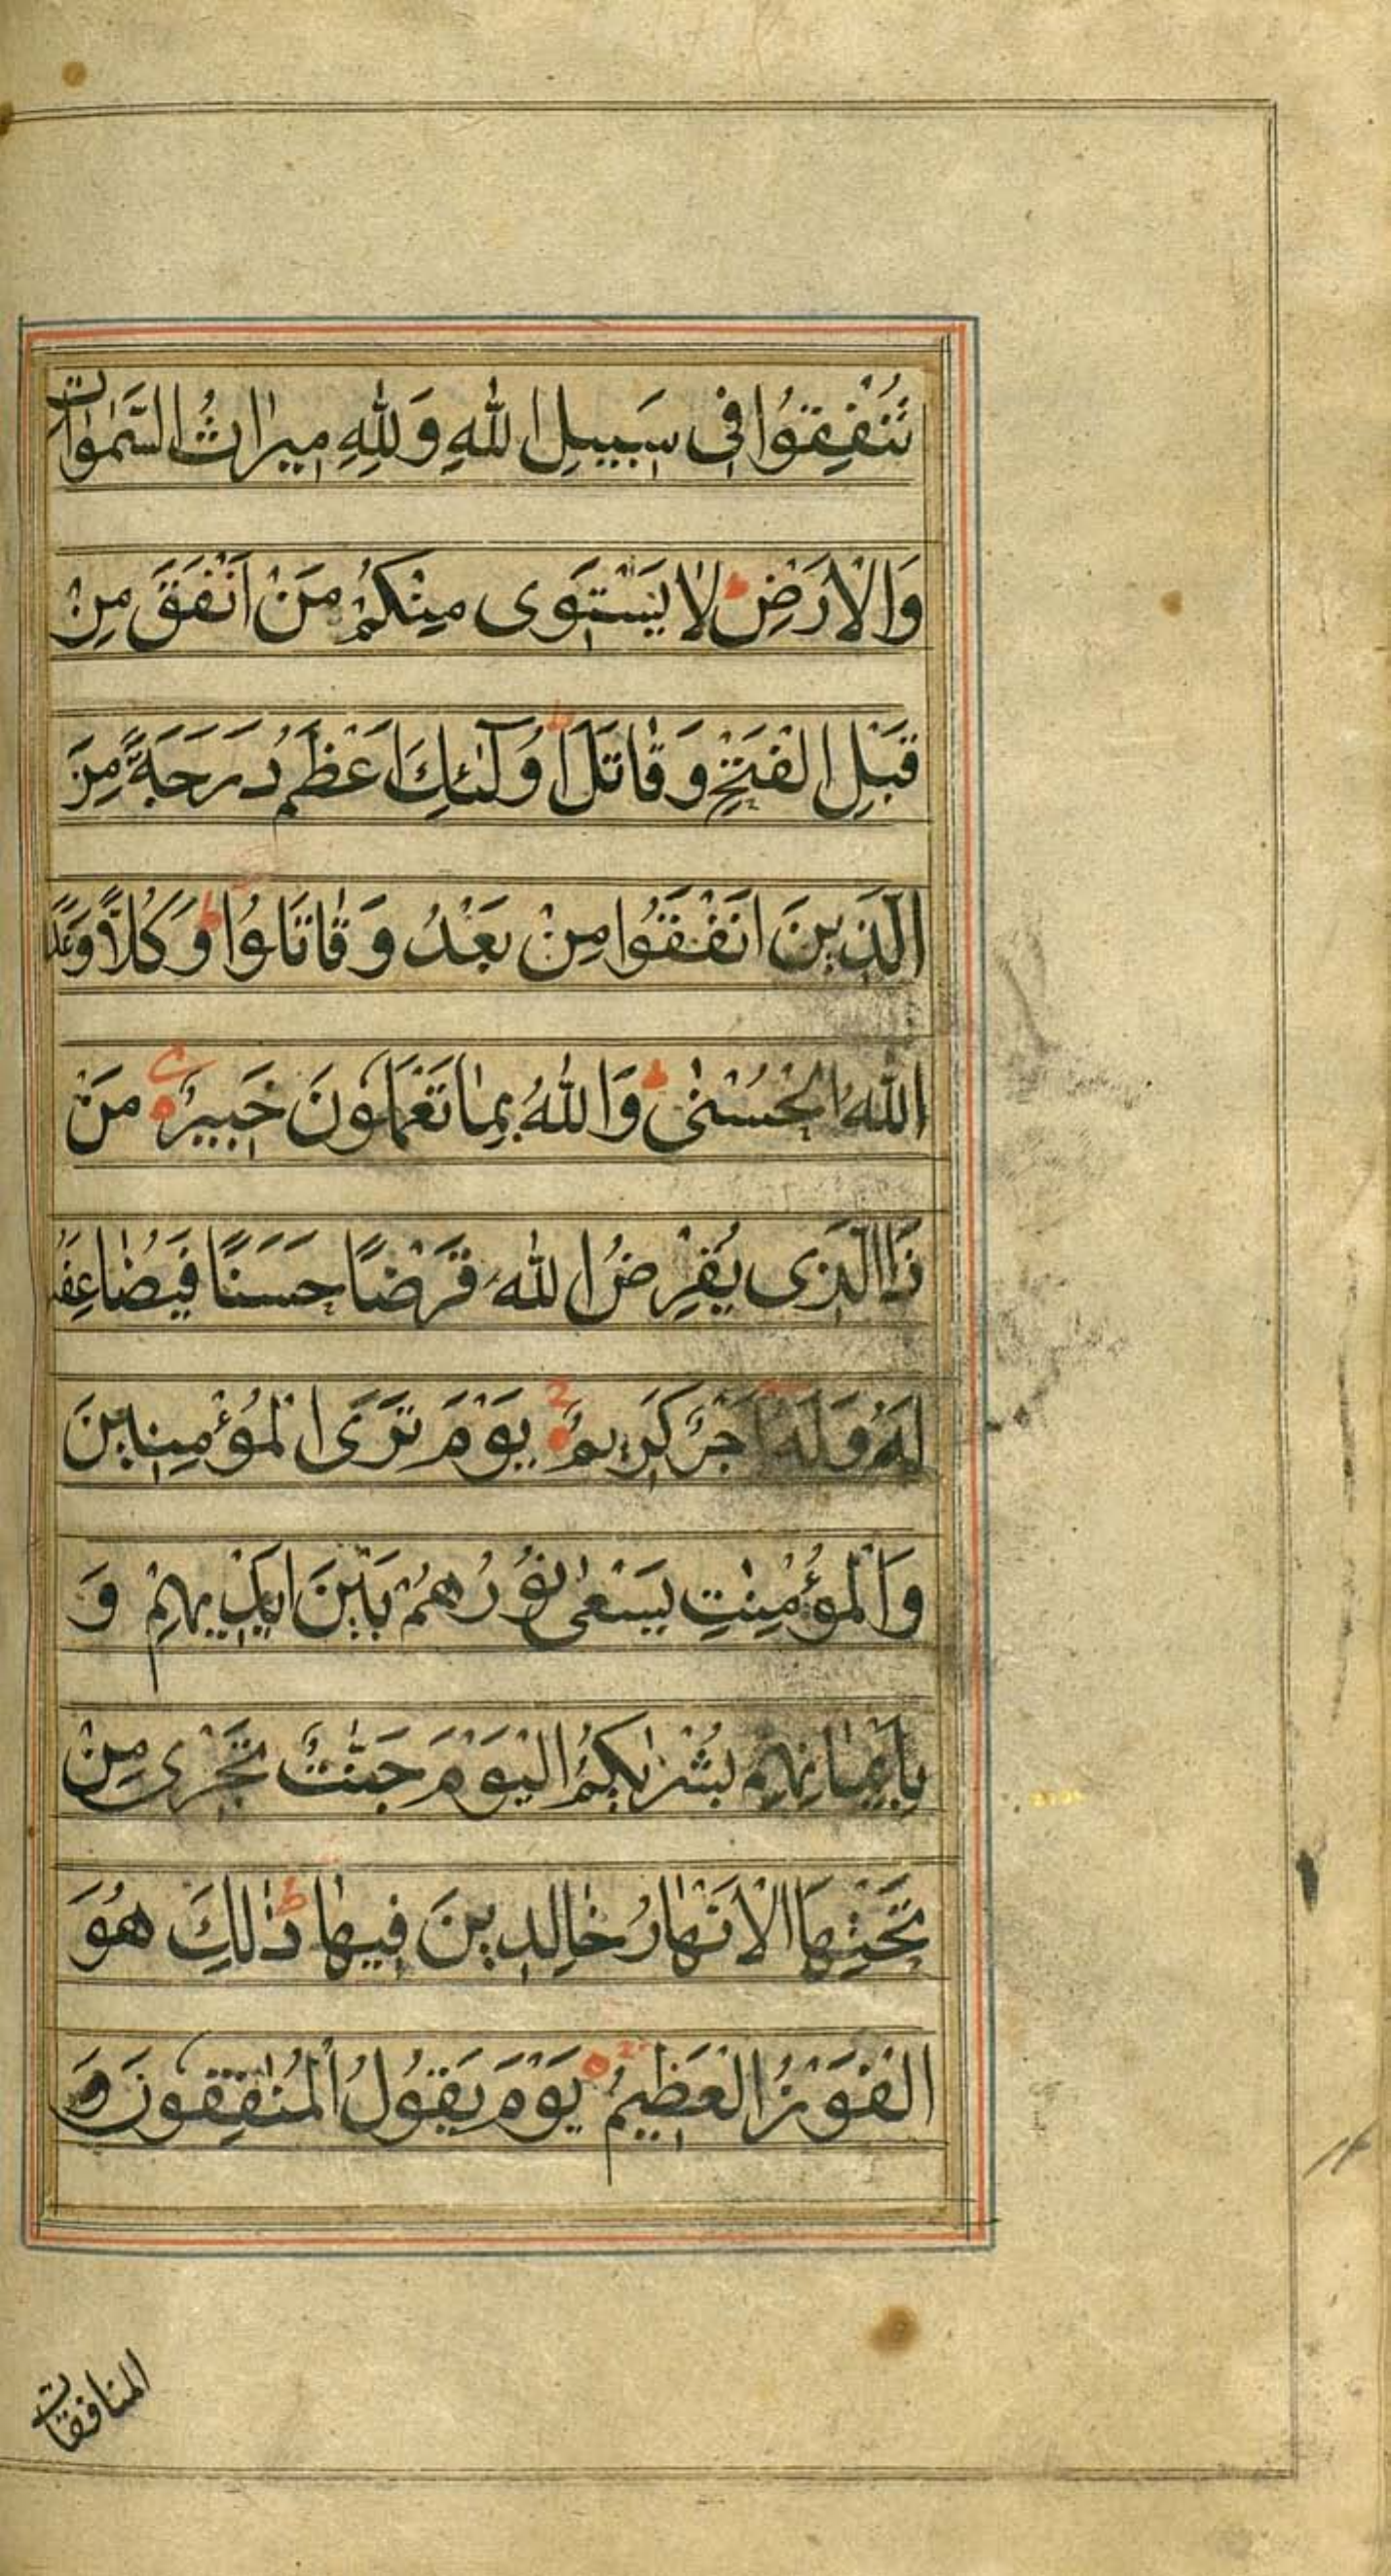 تُنْفِقُوا فِى سَبِيلِ اللّٰهِ وَلِلّٰهِ مِيرٰاثُ السَّمٰوٰاتِ
وَالْاَرْضِ ط لٰا يَسْتَوِى مِنْكُمْ مَنْ اَنْفَقَ مِنْ
قَبْلِ الْفَتْحِ وَقٰاتَلَ ط اُولٰٓئِكَ اَعْظَمُ دَرَجَةً مِنَ
الَّذِينَ اَنْفَقُوا مِنْ بَعْدُ وَقٰاتَلُوا ط وَكُلّاً وَعَدَ
اللّٰهُ الْحُسْنٰى ط وَاللّٰهُ بِمٰا تَعْمَلُونَ خَبِيرٌ مَنْ
ذَا الَّذِى يُقْرِضُ اللّٰهَ قَرْضًا حَسَنًا فَيُضٰاعِفَهُ
لَهُ وَلَهُ اَجْرٌ كَرِيمٌ يَوْمَ تَرَى الْمُؤْمِنِينَ
وَالْمُؤْمِنٰتِ يَسْعٰى نُورُهُمْ بَيْنَ اَيْدِيهِمْ وَ
بِاَيْمٰانِهِمْ بُشْرٰيكُمُ الْيَوْمَ جَنّٰتٌ تَجْرِى مِنْ
تَحْتِهَا الْاَنْهٰارُ خٰالِدِينَ فِيهٰا ط ذٰلِكَ هُوَ
الْفَوْزُ الْعَظِيمُ يَوْمَ يَقُولُ الْمُنٰفِقُونَ وَ
المنافقات